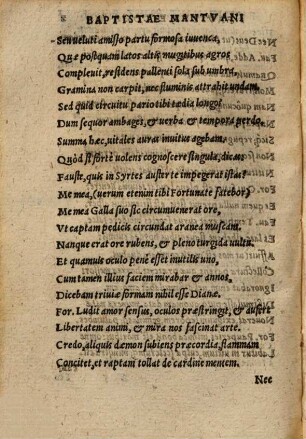 8 BAPTISTAE MANTVANI
Seu veluti amisso partu formosa iuuenca,
Quæ postquam latos altis mugitibus agros
Compleuit, residens pallenti sola sub umbra,
Gramina non carpit, nec fluminis attrahit undam.
Sed quid circuitu pario tibi tædia longo?
Dum sequor ambages, & uerba & tempora perdo.
Summa hæc, uitales auras inuitus agebam.
Quòd si fortè uolens cognoscere singula, dicas:
Fauste, quis in Syrtes auster te impegerat istas?
Me mea, (uerum etenim tibi Fortunate fatebor)
Me mea Galla suo sic circumuenerat ore,
Vt captam pedicis circundat aranea muscam.
Nanque erat ore rubens, & pleno turgida uultu.
Et quamuis oculo penè esset inutilis uno,
Cum tamen illius faciem mirabar & annos,
Dicebam triuiæ formam nihil esse Dianæ.
For. Ludit amor sensus, oculos præstringit, & aufert
Libertatem animi, & mira nos fascinat arte.
Credo, aliquis dæmon subiens præcordia, flammam
Concitet, et raptam tollat de cardine mentem.
Nec